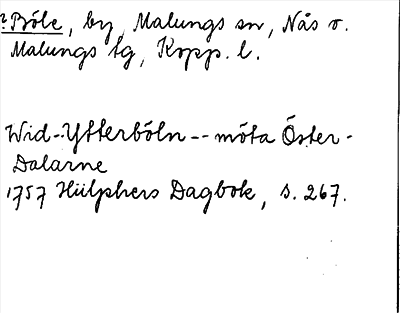 ?Böle, by, Malungs sn, Nås o.
Malungs tg, Kopp. l.
Wid--Ytterböln--möta Öster-
Dalarne
1757 Hülphers Dagbok, s. 267.